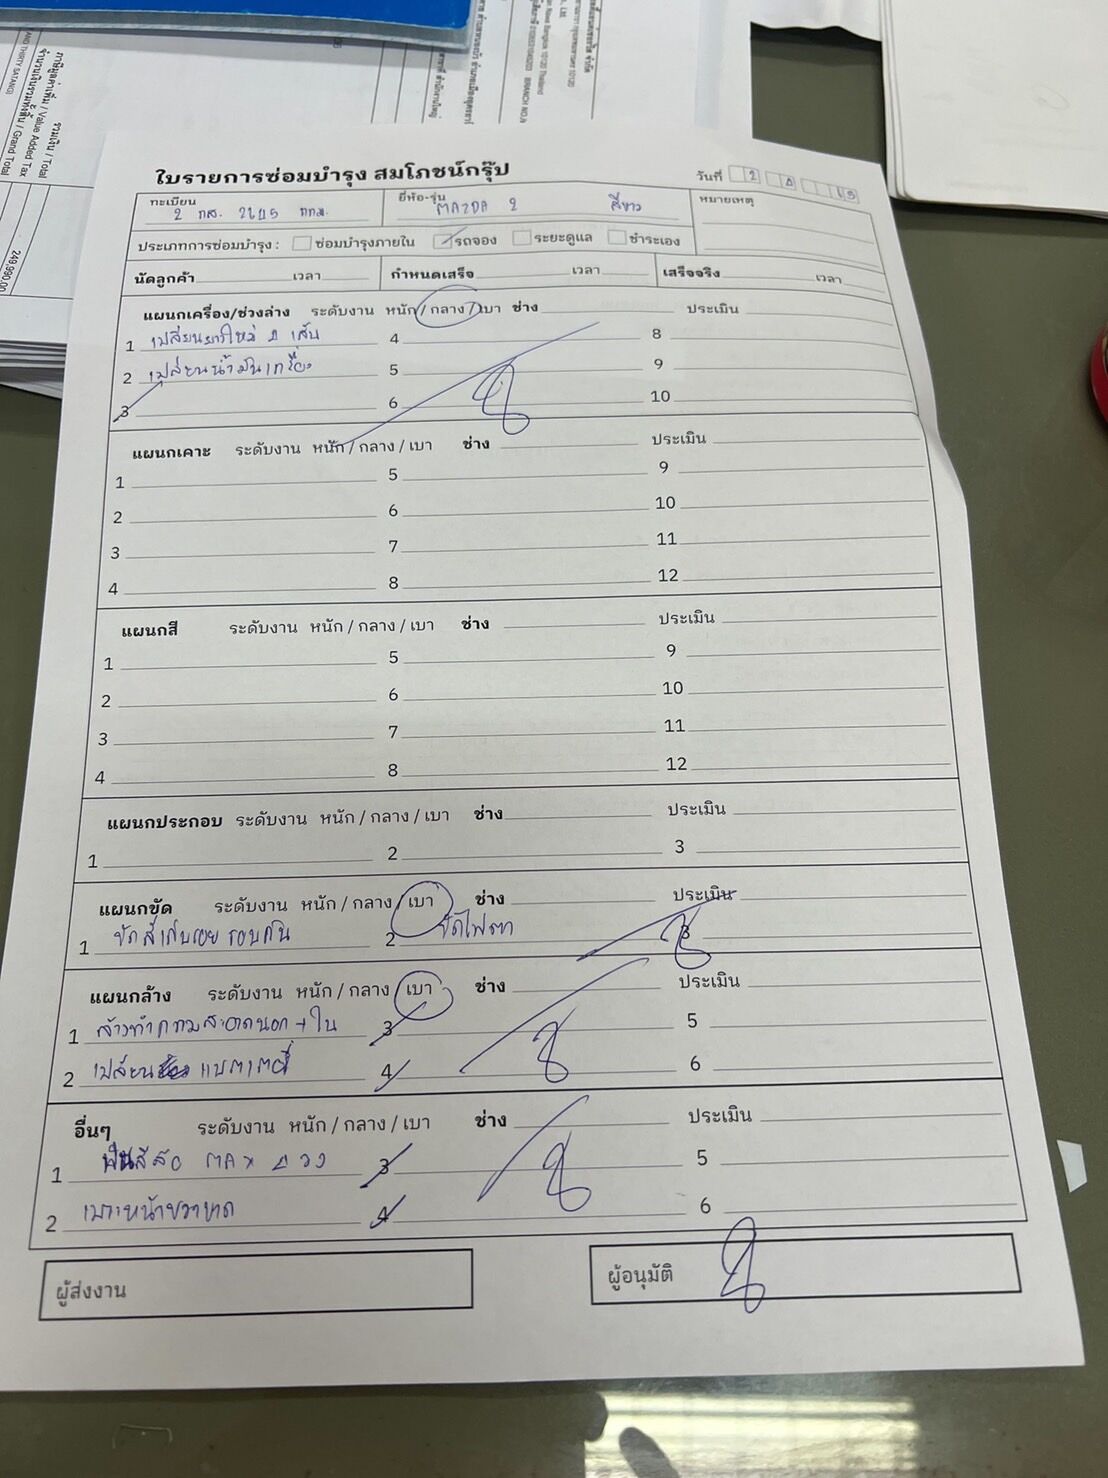 ใบรายการซ่อมบำรุง สมโภชน์กรุ๊ป
วันที่ 2
ทะเบียน 2 กส. กทม.
ยี่ห้อ-รุ่น MAZDA 2 สีขาว
หมายเหตุ
ประเภทการซ่อมบำรุง : ซ่อมบำรุงภายใน รถจอง ระยะดูแล ชำระเอง
นัดลูกค้า เวลา กำหนดเสร็จ เวลา เสร็จจริง เวลา
แผนกเครื่อง/ช่วงล่าง ระดับงาน หนัก / กลาง / เบา ช่าง ประเมิน
1 เปลี่ยนยางใหม่ 4 เส้น 4 8
2 เปลี่ยนน้ำมันเครื่อง 5 9
3 6 10
แผนกเคาะ ระดับงาน หนัก / กลาง / เบา ช่าง ประเมิน
1 5 9
2 6 10
3 7 11
4 8 12
แผนกสี ระดับงาน หนัก / กลาง / เบา ช่าง ประเมิน
1 5 9
2 6 10
3 7 11
4 8 12
แผนกประกอบ ระดับงาน หนัก / กลาง / เบา ช่าง ประเมิน
1 2 3
แผนกขัด ระดับงาน หนัก / กลาง / เบา ช่าง ประเมิน
1 ขัดสีเก็บรอย รอบคัน 2 ขัดไฟตา 3
แผนกล้าง ระดับงาน หนัก / กลาง / เบา ช่าง ประเมิน
1 ล้างทำความสะอาดนอก + ใน 3 5
2 เปลี่ยน แบตเตอรี่ 4 6
อื่นๆ ระดับงาน หนัก / กลาง / เบา ช่าง ประเมิน
1 สีล้อ MAX 4 วง 3 5
2 เบาะหน้าขวาขาด 4 6
ผู้ส่งงาน
ผู้อนุมัติ
รวมเงิน / Total
ภาษีมูลค่าเพิ่ม / Value Added Tax
จำนวนเงินรวมทั้งสิ้น / Grand Total
249,990.00